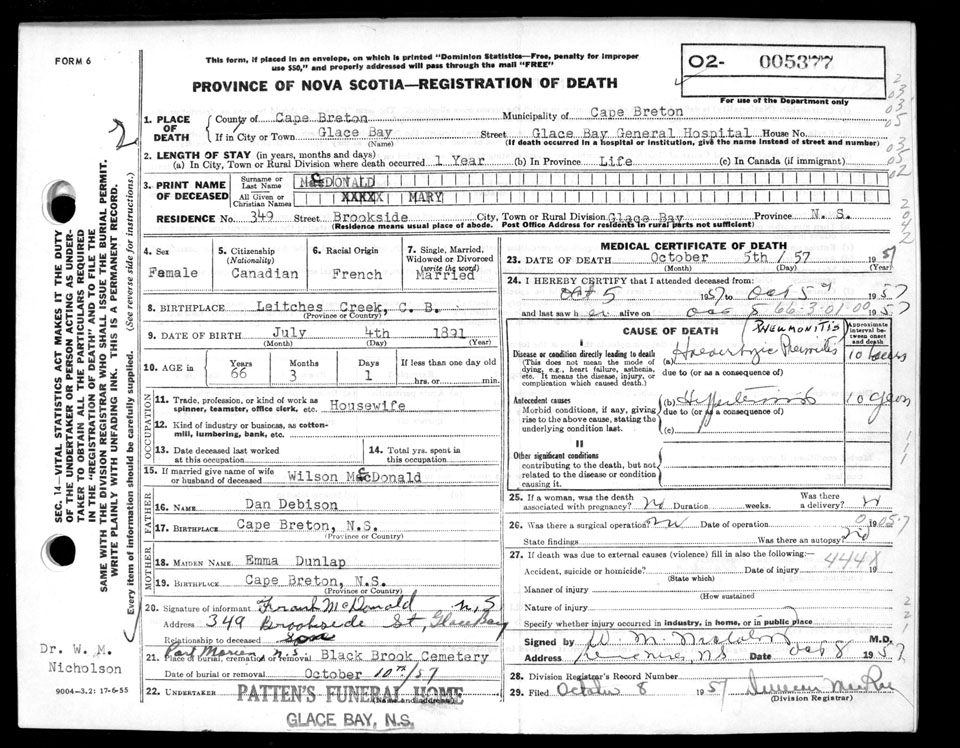 FORM 6
This form, if placed in an envelope, on which is printed "Dominion Statistics—Free, penalty for improper
use $50," and properly addressed will pass through the mail "FREE"
PROVINCE OF NOVA SCOTIA—REGISTRATION OF DEATH
02- 005377
For use of the Department only
2
1. PLACE OF DEATH
County of Cape Breton Municipality of Cape Breton
If in City or Town Glace Bay Street Glace Bay General Hospital House No.
(Name) (If death occurred in a hospital or institution, give the name instead of street and number)
2. LENGTH OF STAY (in years, months and days)
(a) In City, Town or Rural Division where death occurred 1 Year (b) In Province Life (c) In Canada (if immigrant)
3. PRINT NAME OF DECEASED
Surname or Last Name McDONALD
All Given or Christian Names XXXXX MARY
RESIDENCE No. 349 Street Brookside City, Town or Rural Division Glace Bay Province N. S.
(Residence means usual place of abode. Post Office Address for residents in rural parts not sufficient)
4. Sex
Female
5. Citizenship
(Nationality)
Canadian
6. Racial Origin
French
7. Single, Married, Widowed or Divorced
(write the word)
Married
8. BIRTHPLACE Leitches Creek, C. B.
(Province or Country)
9. DATE OF BIRTH July 4th 1891
(Month) (Day) (Year)
10. AGE in Years 66 Months 3 Days 1 If less than one day old
hrs. or min.
OCCUPATION
11. Trade, profession, or kind of work as spinner, teamster, office clerk, etc. Housewife
12. Kind of industry or business, as cotton-mill, lumbering, bank, etc.
13. Date deceased last worked at this occupation
14. Total yrs. spent in this occupation
15. If married give name of wife or husband of deceased Wilson McDonald
FATHER
16. NAME Dan Debison
17. BIRTHPLACE Cape Breton, N.S.
(Province or Country)
MOTHER
18. MAIDEN NAME Emma Dunlap
19. BIRTHPLACE Cape Breton, N.S.
(Province or Country)
20. Signature of informant Frank McDonald
Address 349 Brookside St, Glace Bay N.S
Relationship to deceased Son
Port Morien N.S.
21. Place of burial, cremation or removal Black Brook Cemetery
Date of burial or removal October 10th/57
22. UNDERTAKER PATTEN'S FUNERAL HOME
(Name and address)
GLACE BAY, N.S.
MEDICAL CERTIFICATE OF DEATH
23. DATE OF DEATH October 5th/57 1957
(Month) (Day) (Year)
24. I HEREBY CERTIFY that I attended deceased from:
Oct 5 1957 to Oct 5 1957
and last saw her alive on Oct 5 66-3-01-00 1957
CAUSE OF DEATH
(PNEUMONITIS)
Approximate interval between onset and death
I
Disease or condition directly leading to death
(This does not mean the mode of dying, e.g., heart failure, asthenia, etc. It means the disease, injury, or complication which caused death.)
(a) 10
due to (or as a consequence of)
Antecedent causes
Morbid conditions, if any, giving rise to the above cause, stating the underlying condition last.
(b) 10 years
due to (or as a consequence of)
(c)
II
Other significant conditions
contributing to the death, but not related to the disease or condition causing it.
25. If a woman, was the death associated with pregnancy? No Duration weeks. Was there a delivery?
26. Was there a surgical operation? Date of operation 19
State findings Was there an autopsy?
27. If death was due to external causes (violence) fill in also the following:—
444X
Accident, suicide or homicide? Date of injury 19
(State which)
Manner of injury
(How sustained
Nature of injury
Specify whether injury occurred in industry, in home, or in public place
Signed by W. M. Nicholson M.D.
Address N.S Date Oct 8 1957
28. Division Registrar's Record Number
29. Filed October 8 1957
(Division Registrar)
SEC. 14—VITAL STATISTICS ACT MAKES IT THE DUTY
OF THE UNDERTAKER OR PERSON ACTING AS UNDER-
TAKER TO OBTAIN ALL THE PARTICULARS REQUIRED
IN THE "REGISTRATION OF DEATH" AND TO FILE THE
SAME WITH THE DIVISION REGISTRAR WHO SHALL ISSUE THE BURIAL PERMIT.
WRITE PLAINLY WITH UNFADING INK. THIS IS A PERMANENT RECORD.
Every item of information should be carefully supplied. (See reverse side for instructions.)
Dr. W. M.
Nicholson
9004-3.2: 17-6-55